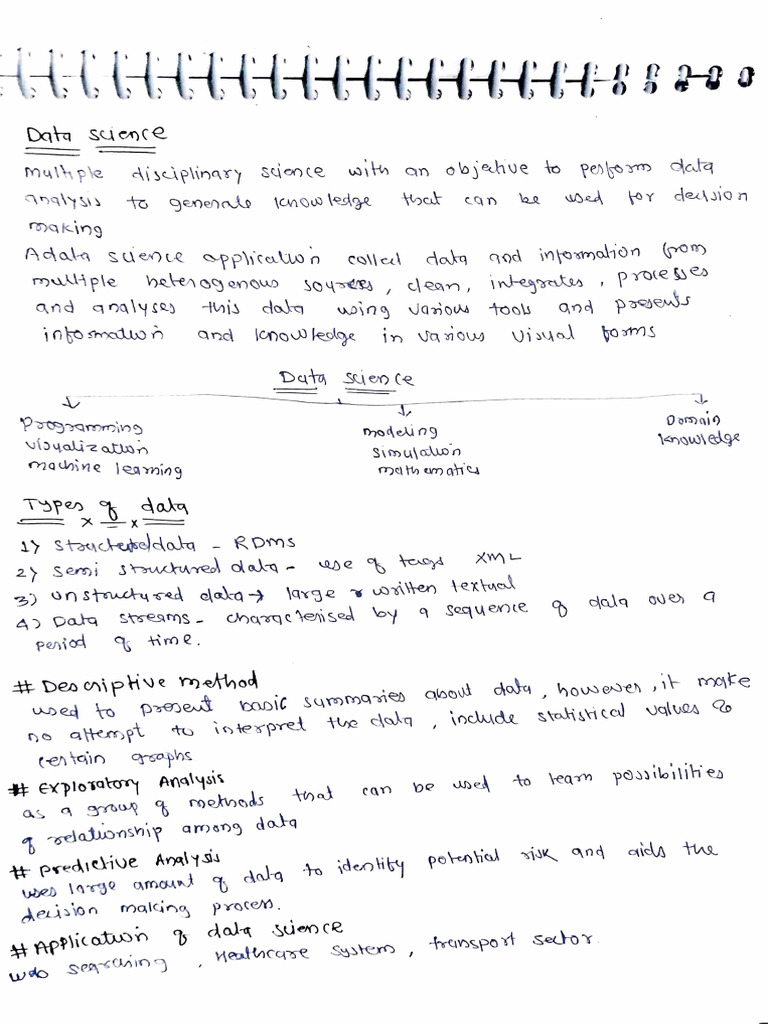 Data science
Multiple disciplinary science with an objective to perform data
analysis to generate knowledge that can be used for decision
making
A data science application collect data and information from
multiple heterogenous sources, clean, integrates, processes
and analyses this data using various tools and presents
information and knowledge in various visual forms
Data science
Programming
visualization
machine learning
modeling
simulation
mathematics
Domain
knowledge
Types of data
1) structured data - RDMS
2) semi structured data - use of tags XML
3) unstructured data → large & written textual
4) Data streams - characterised by a sequence of data over a
period of time.
# Descriptive method
used to present basic summaries about data, however, it make
no attempt to interpret the data, include statistical values &
certain graphs
# Exploratory Analysis
as a group of methods that can be used to learn possibilities
of relationship among data
# Predictive Analysis
uses large amount of data to identify potential risk and aids the
decision making process.
# Application of data science
web searching, Healthcare system, transport sector.